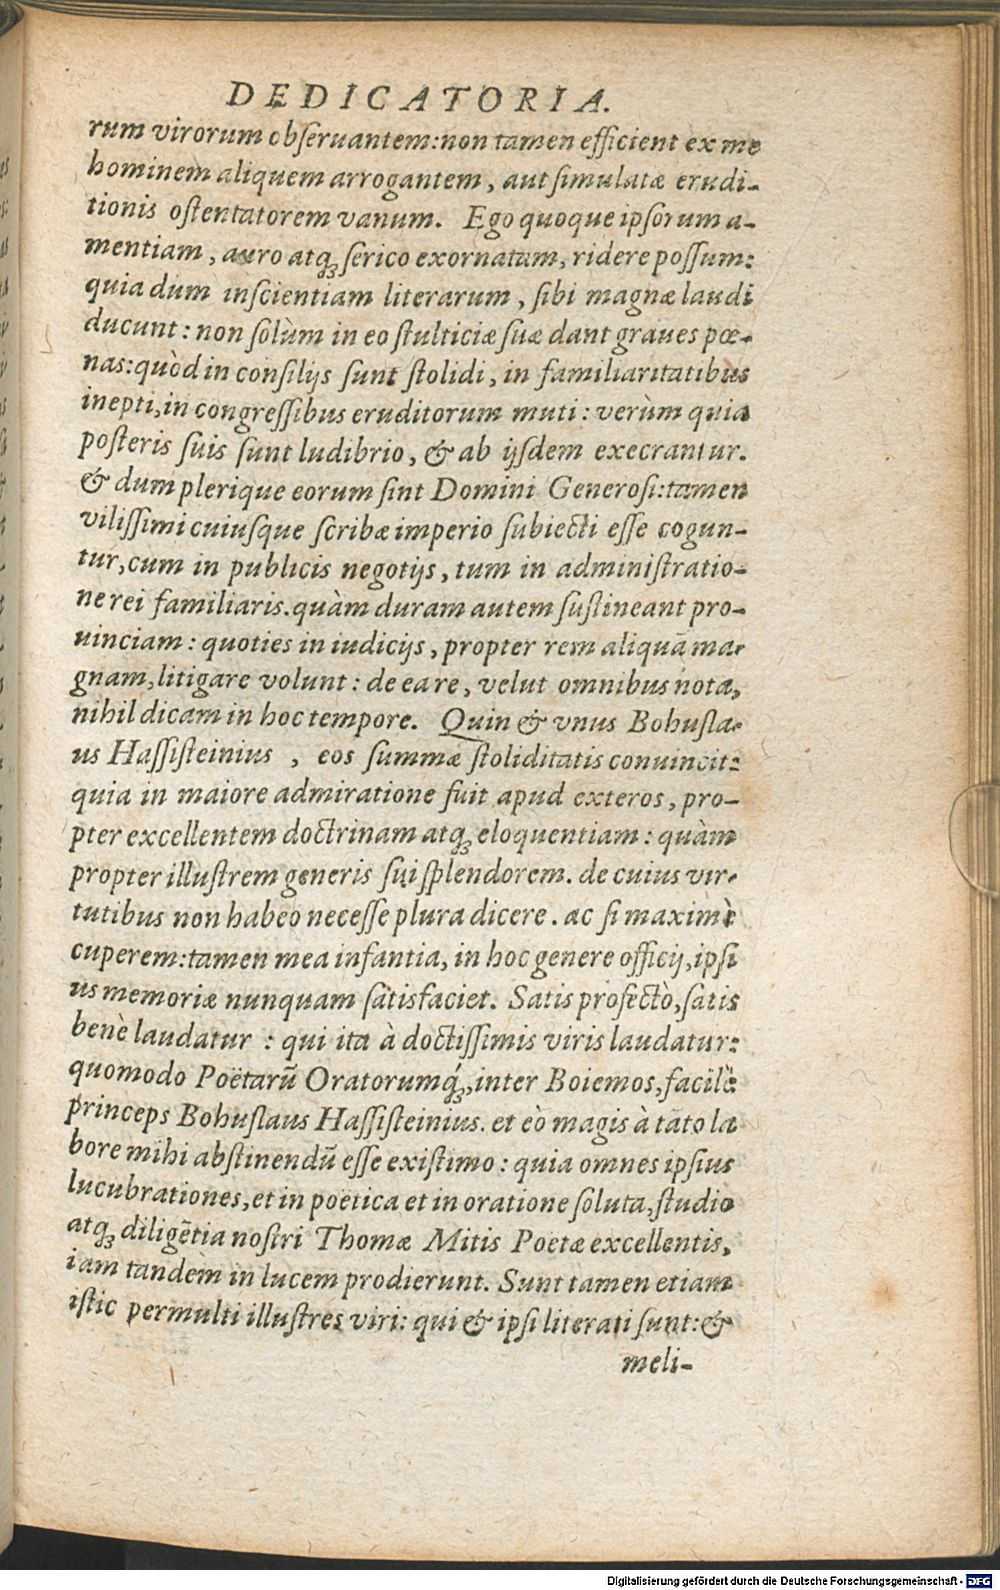 DEDICATORIA.
rum virorum obſeruantem: non tamen efficient ex me
hominem aliquem arrogantem, aut ſimulatæ erudi-
tionis oſtentatorem vanum. Ego quoque ipſorum a-
mentiam, auro atq́ꝫ ſerico exornatam, ridere poſſum:
quia dum inſcientiam literarum, ſibi magnæ laudi
ducunt: non ſolùm in eo ſtulticiæ ſuæ dant graues pœ-
nas: quòd in conſilijs ſunt ſtolidi, in familiaritatibus
inepti, in congreſſibus eruditorum muti: verùm quia
poſteris ſuis ſunt ludibrio, & ab ijſdem execrantur.
& dum plerique eorum ſint Domini Generoſi: tamen
viliſſimi cuiuſque ſcribæ imperio ſubiecti eſſe cogun-
tur, cum in publicis negotijs, tum in adminiſtratio-
ne rei familiaris. quàm duram autem ſuſtineant pro-
uinciam: quoties in iudicijs, propter rem aliquā ma-
gnam, litigare volunt: de ea re, velut omnibus nota,
nihil dicam in hoc tempore. Quin & vnus Bohuſla-
us Haſſiſteinius, eos ſummæ ſtoliditatis conuincit:
quia in maiore admiratione fuit apud exteros, pro-
pter excellentem doctrinam atqꝫ eloquentiam: quàm
propter illuſtrem generis ſui ſplendorem. de cuius vir-
tutibus non habeo neceſſe plura dicere. ac ſi maximè
cuperem: tamen mea infantia, in hoc genere officij, ipſi
us memoriæ nunquam ſatisfaciet. Satis profectò, ſatis
benè laudatur: qui ita à doctiſſimis viris laudatur:
quomodo Poëtarū Oratorumq́ꝫ, inter Boiemos, facilè
princeps Bohuſlaus Haſſiſteinius. et eò magis à tāto la
bore mihi abſtinendū eſſe exiſtimo: quia omnes ipſius
lucubrationes, et in poëtica et in oratione ſoluta, ſtudio
atqꝫ diligētia noſtri Thomæ Mitis Poëtæ excellentis,
iam tandem in lucem prodierunt. Sunt tamen etiam
iſtic permulti illuſtres viri: qui & ipſi literati ſunt: &
meli-
Digitalisierung gefördert durch die Deutsche Forschungsgemeinschaft - DFG